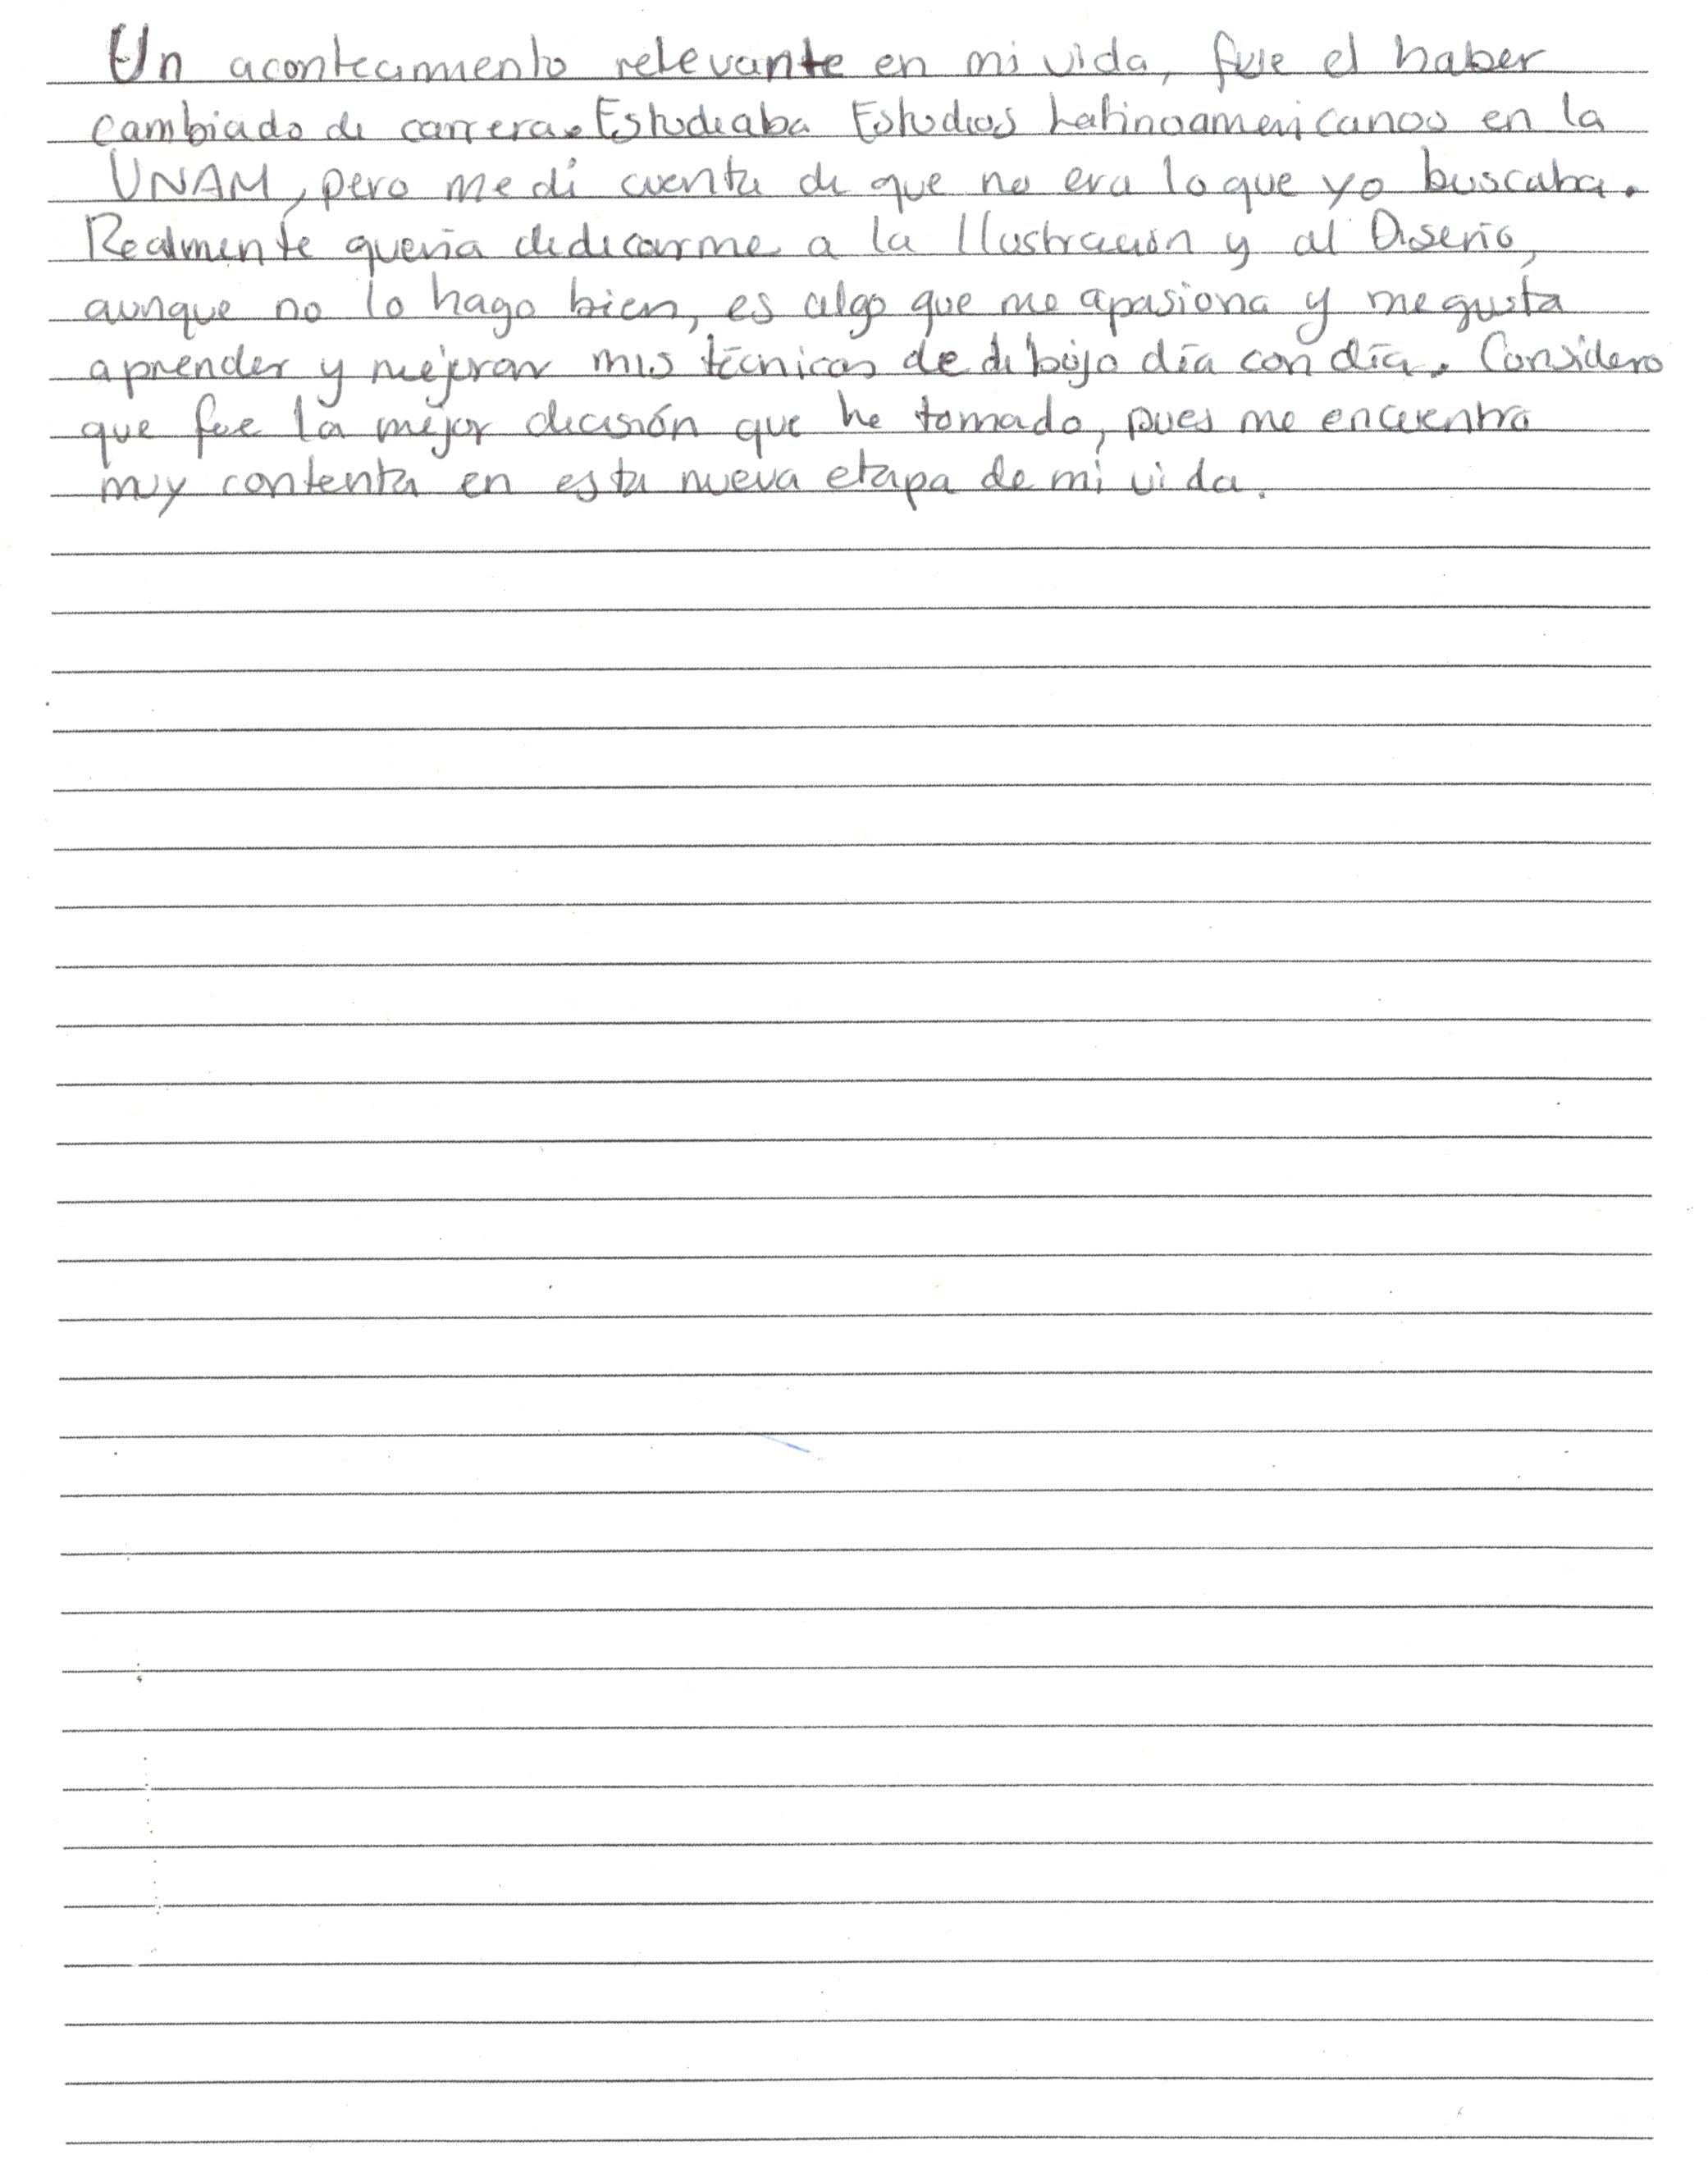 Un acontecimiento relevante en mi vida, fue el haber
cambiado de carrera. Estudiaba Estudios Latinoamericanos en la
UNAM, pero me di cuenta de que no era lo que yo buscaba.
Realmente quería dedicarme a la Ilustración y al Diseño,
aunque no lo hago bien, es algo que me apasiona y me gusta
aprender y mejorar mis técnicas de dibujo día con día. Considero
que fue la mejor decisión que he tomado, pues me encuentro
muy contenta en esta nueva etapa de mi vida.